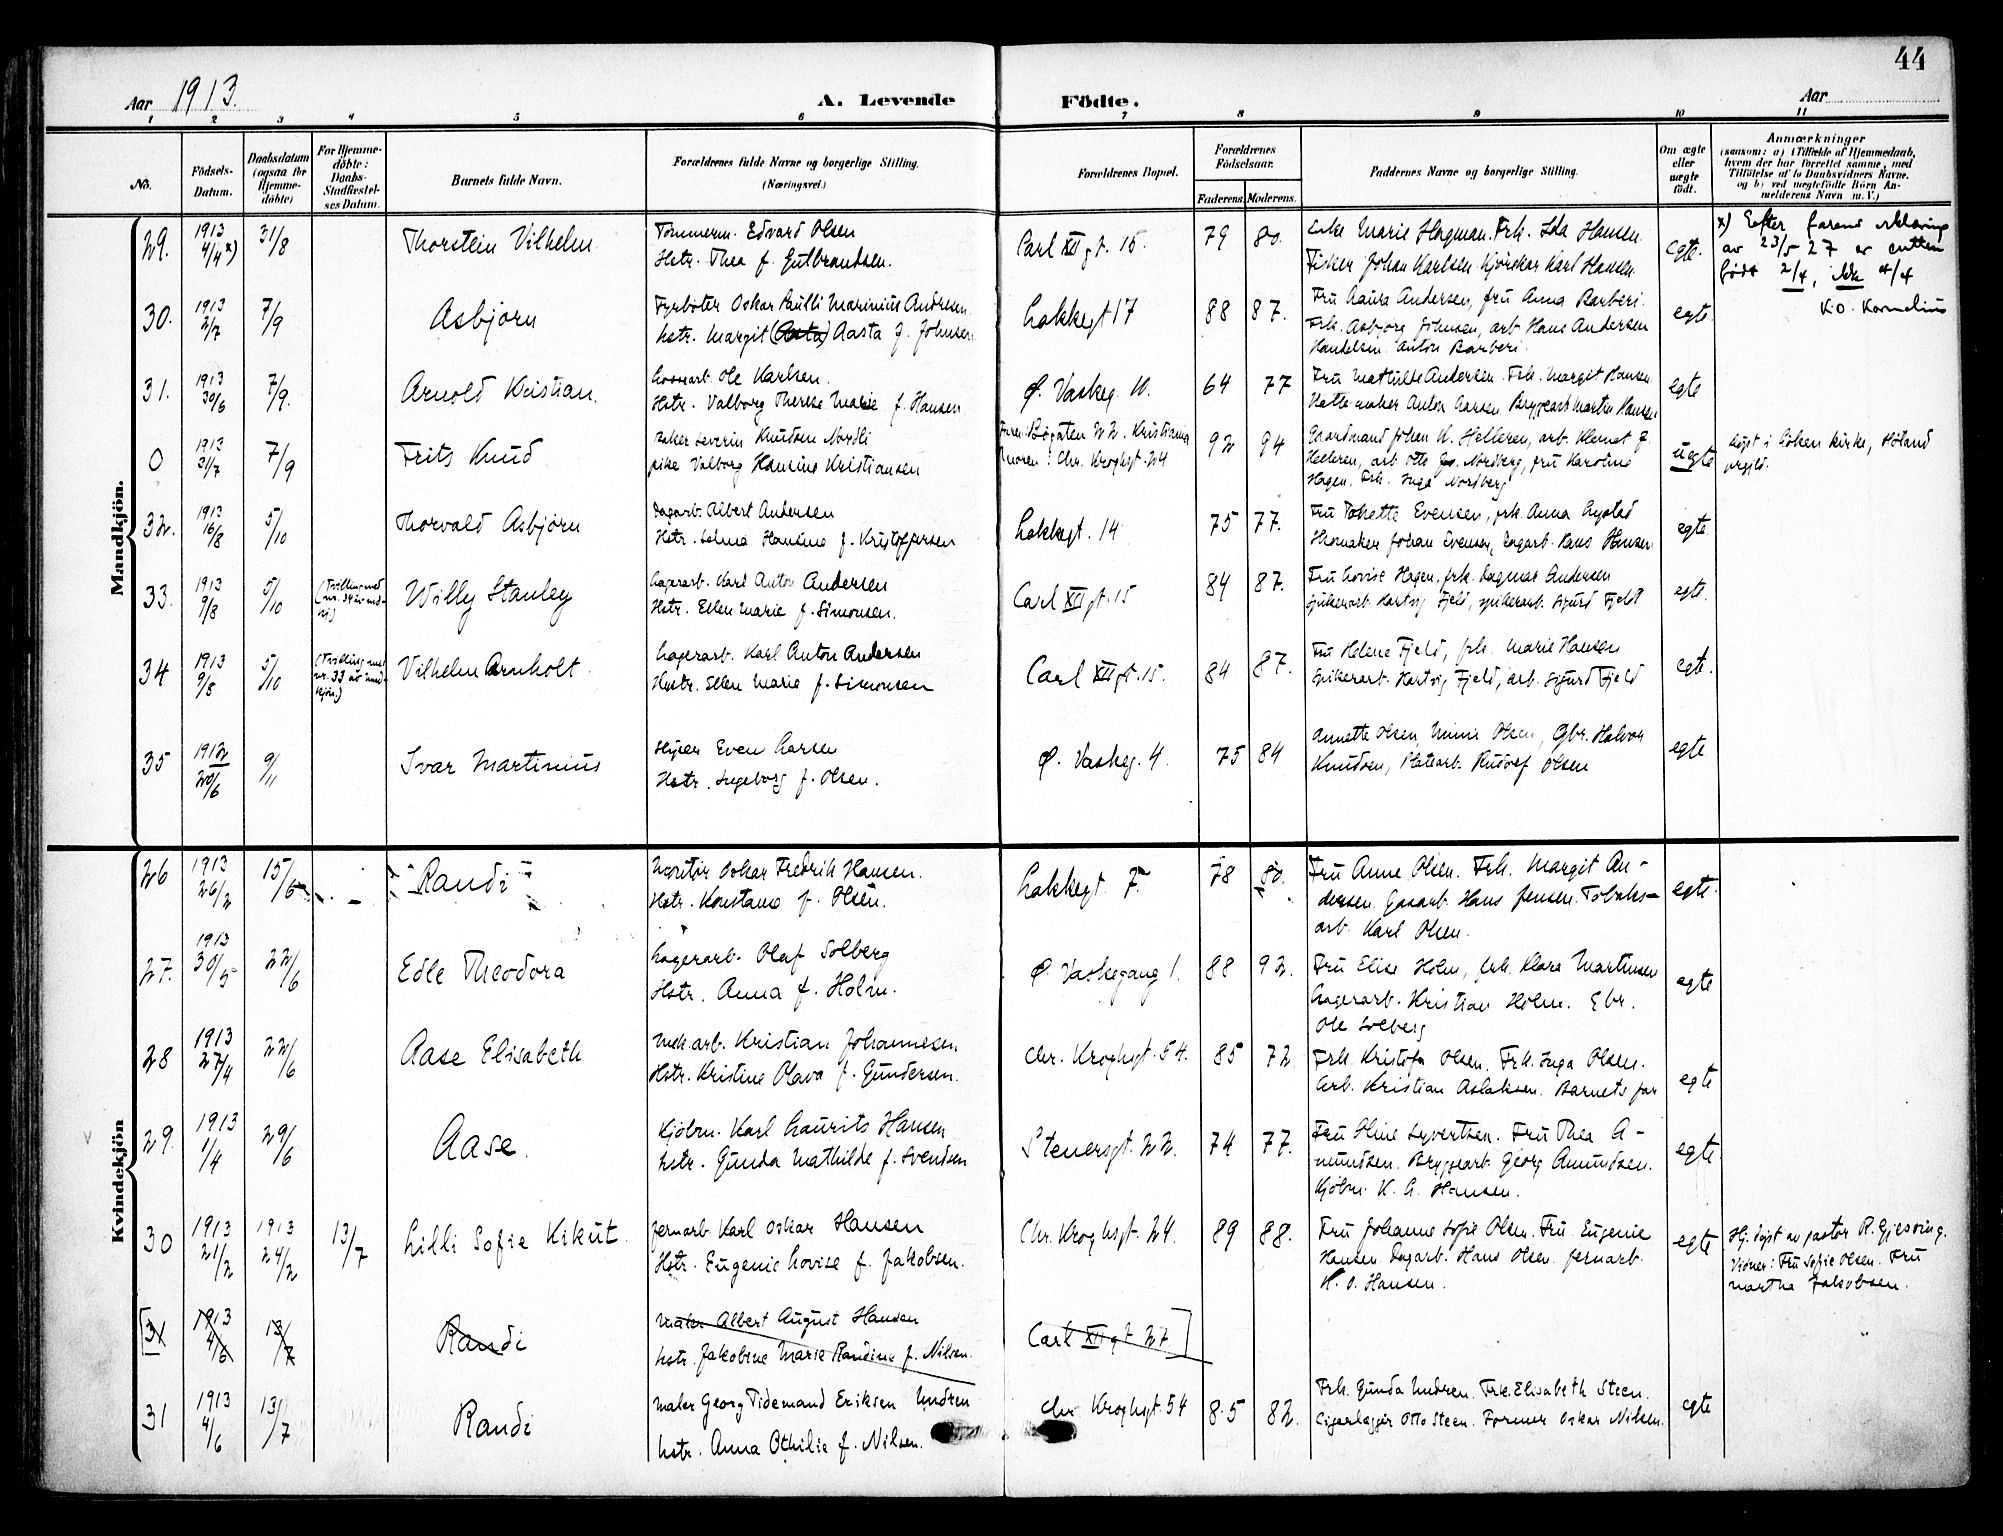 44
Aar 1913.
A. Levende Födte.
Aar
1 2 3 4 5 6 7 8 9 10 11
No.
Födsels-Datum.
Daabsdatum (ogsaa for Hjemme-döbte)
For Hjemme-döbte: Daabs-Stadfæstel-ses Datum.
Barnets fulde Navn.
Forældrenes fulde Navne og borgerlige Stilling.
(Næringsvei.)
Forældrenes Bopæl.
Forældrenes Födselsaar.
Faderens. Moderens.
Faddernes Navne og borgerlige Stilling.
Om ægte eller uægte födt.
Anmærkninger
(saasom: a) i Tilfælde af Hjemmedaab,
hvem der har forrettet samme, med
Tilföielse af to Daabsvidners Navne.
og b) ved uægtefödte Börn An-
melderens Navn m. V.)
Mandkjön.
29. 1913 4/4 x) 31/8 Thorstein Vilhelm
Tömmerm. Edvard Olsen
Hstr. Thea f. Gulbrandsen.
Carl XII gt. 15 79 80.
Enke Marie Hagman. Frk. Ida Hansen.
Fisker Johan Karlsen. Kjörekar Karl Hansen
egte.
x) Efter farens erklæring
av 23/5 27 er gutten
født 2/4, ikke 4/4
K.O. Kornelius
30. 1913 2/7 7/9 Asbjørn
Fyrböter Oskar Paulli Marinius Andresen
hstr. Margit (Aasta) Aasta f. Johnsen
Lakkegt 17 88 87.
Fru Laura Andersen, fru Anna Barberi.
Frk. Asbjørg Johnsen, arb. Hans Andersen
Handelsm. Anton Barberi.
egte.
31. 1913 30/6 7/9. Arnold Kristian.
Ole Karlsen.
Hstr. Valborg Therese Marie f. Hansen
Ø. Vaskeg. 10. 64 77
Fru Mathilde Andersen. Frk. Margit Hansen
Hattemaker Anton Larsen. Bryggearb Martin Hansen
egte
0 1913 31/7 7/9 Frits Knud
Baker Severin Knudsen Nordli
pike Valborg Hansine Kristiansen
Faren: Bøgaten 22. Kristiania
Moren: Chr. Kroghgt. 24
92 94
Gaardmand Johan K. Helleren, arb. Klemet J.
Helleren, arb. Otto Nordberg, fru Karoline
Hagen. Frk. Inga Nordberg
uegte
døpt i Løken kirke, Høland
prgjld.
32. 1913 16/8 5/10 Thorvald Asbjørn
Dagarb. Albert Andersen
Hstr. Selma Hansine f. Kristoffersen
Lakkegt. 14 75 77.
Fru Evensen, frk. Anna Lystad
Skomaker Johan Evensen, Dagarb. Hans Hansen
egte.
33. 1913 9/8 5/10 (Tvilling med nr. 34 av mandkj)
Willy Stanley
Lagerarb. Karl Anton Andersen
Hstr. Ellen Marie f. Simonsen.
Carl XII gt. 15 84 87.
Fru Lovise Hagen, frk. Dagmar Andersen
spikerarb. Hartvig Fjeld, spikerarb. Sigurd Fjeld
egte.
34 1913 9/8 5/10 (Tvilling med nr. 33 av mandkjön)
Vilhelm Arnholt.
Lagerarb. Karl Anton Andersen
Hstr. Ellen Marie f. Simonsen
Carl XII gt. 15. 84 87.
Fru Helene Fjeld, frk. Marie Hansen
Spikerarb. Hartvig Fjeld, arb. Sigurd Fjeld
egte.
35 1912 20/6 9/11 Ivar Martinius
Even Larsen
Hstr. Ingeborg f. Olsen.
Ø. Vaskeg. 4. 75 84
Annette Olsen, Minnie Olsen, Gbr. Halvor
Knudsen, Platearb. Rudolf Olsen
egte
Kvindekjön
26 1913 26/2 15/6 Randi
Montør Oskar Fredrik Hansen.
Hstr. Konstanse f. Olsen.
Lakkegt. 7. 78 80.
Fru Anne Olsen. Frk. Margit An-
dersen. Gasarb. Hans Jensen. Tobaks-
arb. Karl Olsen.
egte.
27. 1913 30/5 22/6 Edle Theodora
Lagerarb. Olaf Solberg
Hstr. Anna f. Holm.
Ø. Vaskegang 1. 88 92.
Fru Elise Holm, frk. Klara Martinsen
Lagerarb. Kristian Holm. Gbr.
Ole Solberg
egte
28 1913 27/4 22/6 Aase Elisabeth
Mek.arb. Kristian Johannesen
Hstr. Kristine Olava f. Gundersen.
Chr. Kroghgt. 54. 85 72.
Frk. Kristofa Olsen. Frk. Inga Olsen.
Arb. Kristian Aslaksen. Barnets far
egte
29. 1913 1/4 29/6 Aase.
Kjöbm. Karl Laurits Hansen
hstr. Gunda Mathilde f. Svendsen
Stenersgt. 22. 74 77.
Fru Stine Syvertsen. Fru Thea A-
mundsen. Bryggearb. Georg Amundsen.
Kjöbm. K. L. Hansen.
egte.
30 1913 21/2 1913 24/2 13/7 Lilli Sofie Kikut.
Jernarb. Karl Oskar Hansen
Hstr. Eugenie Lovise f. Jakobsen.
Chr. Kroghgt. 24. 89 88.
Fru Johanne Sofie Olsen. Fru Eugenie
Hansen. Dagarb. Hans Olsen. Jernarb.
K. O. Hansen.
egte
Hj. døpt av pastor R. Gjessing.
Vidner: Fru Sofie Olsen. Fru
Martha Jakobsen.
31 1913 4/6 13/7 Randi
Maler Albert August Hansen
hstr. Jakobine Marie Randine f. Nilsen.
Carl XII gt. 27
31 1913 4/6 13/7 Randi
Maler Georg Tidemand Eriksen Undren
hstr. Anna Othilie f. Nilsen.
Chr Kroghgt 54 85 82.
Frk. Gunda Undren. Frk. Elisabeth Steen.
Cigarlagger Otto Steen. Former Oskar Nilsen.
egte